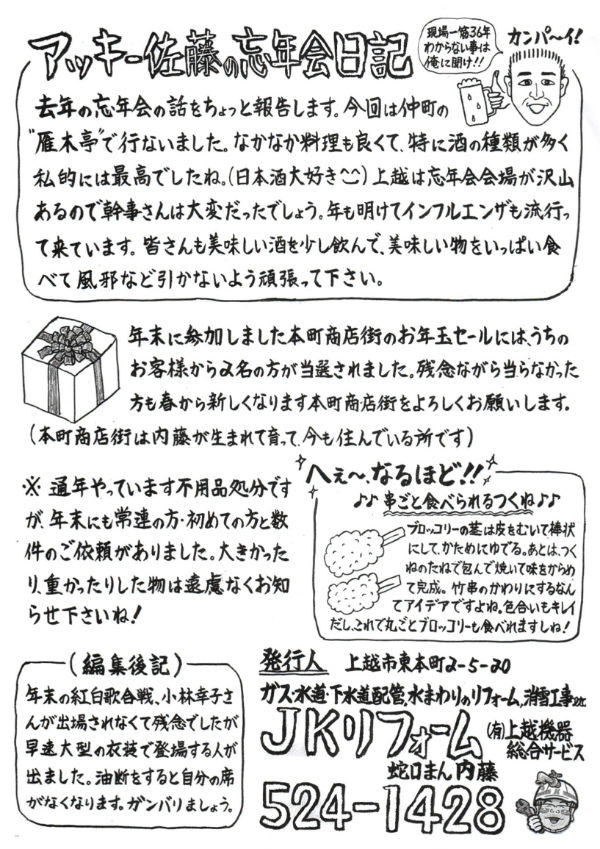 アッキー佐藤の忘年会日記
現場一筋36年
わからない事は
俺に聞け!!
カンパ〜イ!
去年の忘年会の話をちょっと報告します。今回は仲町の
"雁木亭"で行ないました。なかなか料理も良くて、特に酒の種類が多く
私的には最高でしたね。(日本酒大好き^^)上越は忘年会会場が沢山
あるので幹事さんは大変だったでしょう。年も明けてインフルエンザも流行っ
て来ています。皆さんも美味しい酒を少し飲んで、美味しい物をいっぱい食
べて風邪など引かないよう頑張って下さい。
年末に参加しました本町商店街のお年玉セールには、うちの
お客様から2名の方が当選されました。残念ながら当らなかった
方も春から新しくなります本町商店街をよろしくお願いします。
(本町商店街は内藤が生まれて育って、今も住んでいる所です)
※通年やっています不用品処分です
が、年末にも常連の方・初めての方と数
件のご依頼がありました。大きかった
り、重かったりした物は遠慮なくお知
らせ下さいね!
へぇ〜、なるほど!!
♪♪串ごと食べられるつくね♪♪
ブロッコリーの茎は皮をむいて棒状
にして、かためにゆでる。あとは、つく
ねのたねで包んで焼いて味をからめ
て完成。竹串のかわりにするなん
てアイデアですよね。色合いもキレイ
だし、これで丸ごとブロッコリーも食べれますしね!
(編集後記)
年末の紅白歌合戦、小林幸子さ
んが出場されなくて残念でしたが
早速大型の衣装で登場する人が
出ました。油断をすると自分の席
がなくなります。ガンバリましょう。
発行人 上越市東本町2-5-20
ガス・水道・下水道配管、水まわりのリフォーム、消雪工事など
JKリフォーム
(有)上越機器
総合サービス
蛇口まん内藤
524-1428